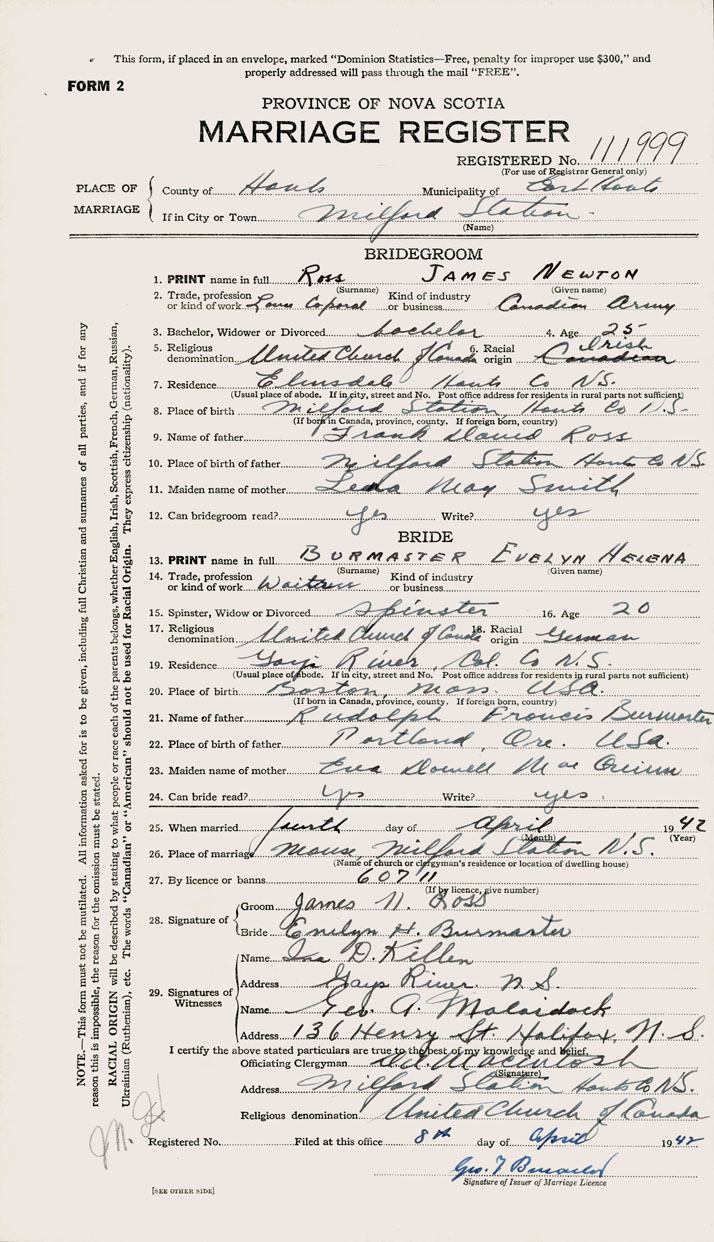 This form, if placed in an envelope, marked "Dominion Statistics—Free, penalty for improper use $300," and
properly addressed will pass through the mail "FREE".
FORM 2
PROVINCE OF NOVA SCOTIA
MARRIAGE REGISTER
REGISTERED No. 111999
(For use of Registrar General only)
PLACE OF MARRIAGE
County of Hants Municipality of East Hants
If in City or Town Milford Station
(Name)
BRIDEGROOM
1. PRINT name in full Ross James Newton
(Surname) (Given name)
2. Trade, profession or kind of work Lance Coporal Kind of industry or business Canadian Army
3. Bachelor, Widower or Divorced bachelor 4. Age 25
5. Religious denomination United Church of Canada 6. Racial origin Canadian Irish
7. Residence Elmsdale Hants Co NS.
(Usual place of abode. If in city, street and No. Post office address for residents in rural parts not sufficient)
8. Place of birth Milford Station, Hants Co N.S.
(If born in Canada, province, county. If foreign born, country)
9. Name of father Frank David Ross
10. Place of birth of father Milford Station Hants Co NS
11. Maiden name of mother Lena May Smith
12. Can bridegroom read? yes Write? yes
BRIDE
13. PRINT name in full Burmaster Evelyn Helena
(Surname) (Given name)
14. Trade, profession or kind of work Waitress Kind of industry or business
15. Spinster, Widow or Divorced spinster 16. Age 20
17. Religious denomination United Church of Canada 18. Racial origin German
19. Residence Gays River, Col. Co N.S.
(Usual place of abode. If in city, street and No. Post office address for residents in rural parts not sufficient)
20. Place of birth Boston, Mass. USA.
(If born in Canada, province, county. If foreign born, country)
21. Name of father Rudolph Francis Burmaster
22. Place of birth of father Portland, Ore. USA.
23. Maiden name of mother Eva Dowell Mac
24. Can bride read? yes Write? yes.
25. When married fourth day of April 1942
(Month) (Year)
26. Place of marriage Manse, Milford Station N.S.
(Name of church or clergyman's residence or location of dwelling house)
27. By licence or banns 60711
(If by licence, give number)
28. Signature of
Groom James N. Ross
Bride Evelyn H. Burmaster
29. Signatures of Witnesses
Name D. Killen
Address Gays River N.S.
Name Geo. A.
Address 136 Henry St. Halifax, N.S.
I certify the above stated particulars are true to the best of my knowledge and belief.
Officiating Clergyman MacIntosh
(Signature)
Address Milford Station Hants Co NS.
Religious denomination United Church of Canada
Registered No. Filed at this office 8th day of April 1942
Geo. T
Signature of Issuer of Marriage Licence
[SEE OTHER SIDE]
NOTE.—This form must not be mutilated. All information asked for is to be given, including full Christian and surnames of all parties, and if for any
reason this is impossible, the reason for the omission must be stated.
RACIAL ORIGIN will be described by stating to what people or race each of the parents belongs, whether English, Irish, Scottish, French, German, Russian,
Ukrainian (Ruthenian), etc. The words "Canadian" or "American" should not be used for Racial Origin. They express citizenship (nationality).